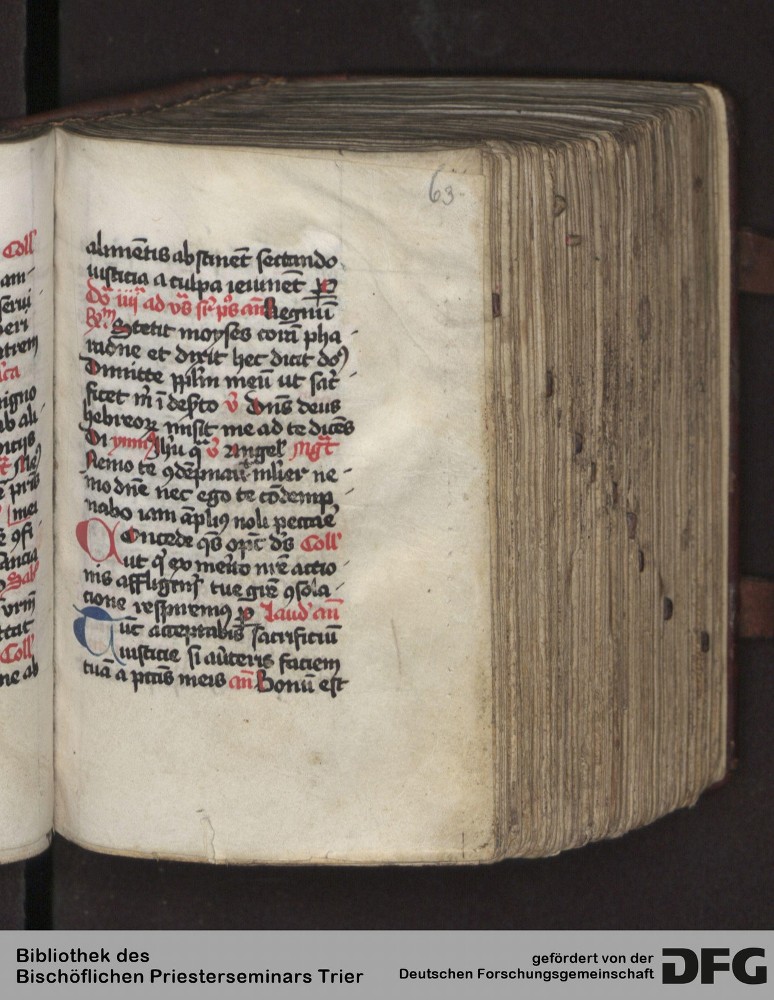 63
alimētis abstinēt sectando
iusticia a culpa ieiunēt p̄
Dō iiij ad vs̄ sr̄ ps̄ an̄ Regnū
Stetit moyses corā pha
raone et dixit hec dicit dos
Dimitte pplm̄ meū ut sacri
ficet m̄ ī deserto v̄ Dn̄s deus
hebreorꝝ misit me ad te dicēs
Di ymnꝰ ihu q̄ v̄ Angelˀ Mgt̄
Nemo te ꝯdēpnauit mlier ne
mo dn̄e nec ego te cōdemp
nabo iam āpliꝰ noli peccare
Concede qs̄ opc̄ ds̄ Collˀ
ut qˀ ex merito nr̄e actio
nis affligimr̄ tue grē ꝯsola
cione respiremꝰ p̄ Laudˀ an̄
Tūc acceptabis̄ sacrificiū
iusticie si au̇teris faciem
tuā a pctīs meis an̄ Bonū est
Collˀ
am
serui
peri
trem
igno
ab ali
ꝯfi
Sabˀ
Collˀ
ne ab
Bibliothek des
Bischöflichen Priesterseminars Trier
gefördert von der
Deutschen Forschungsgemeinschaft
DFG